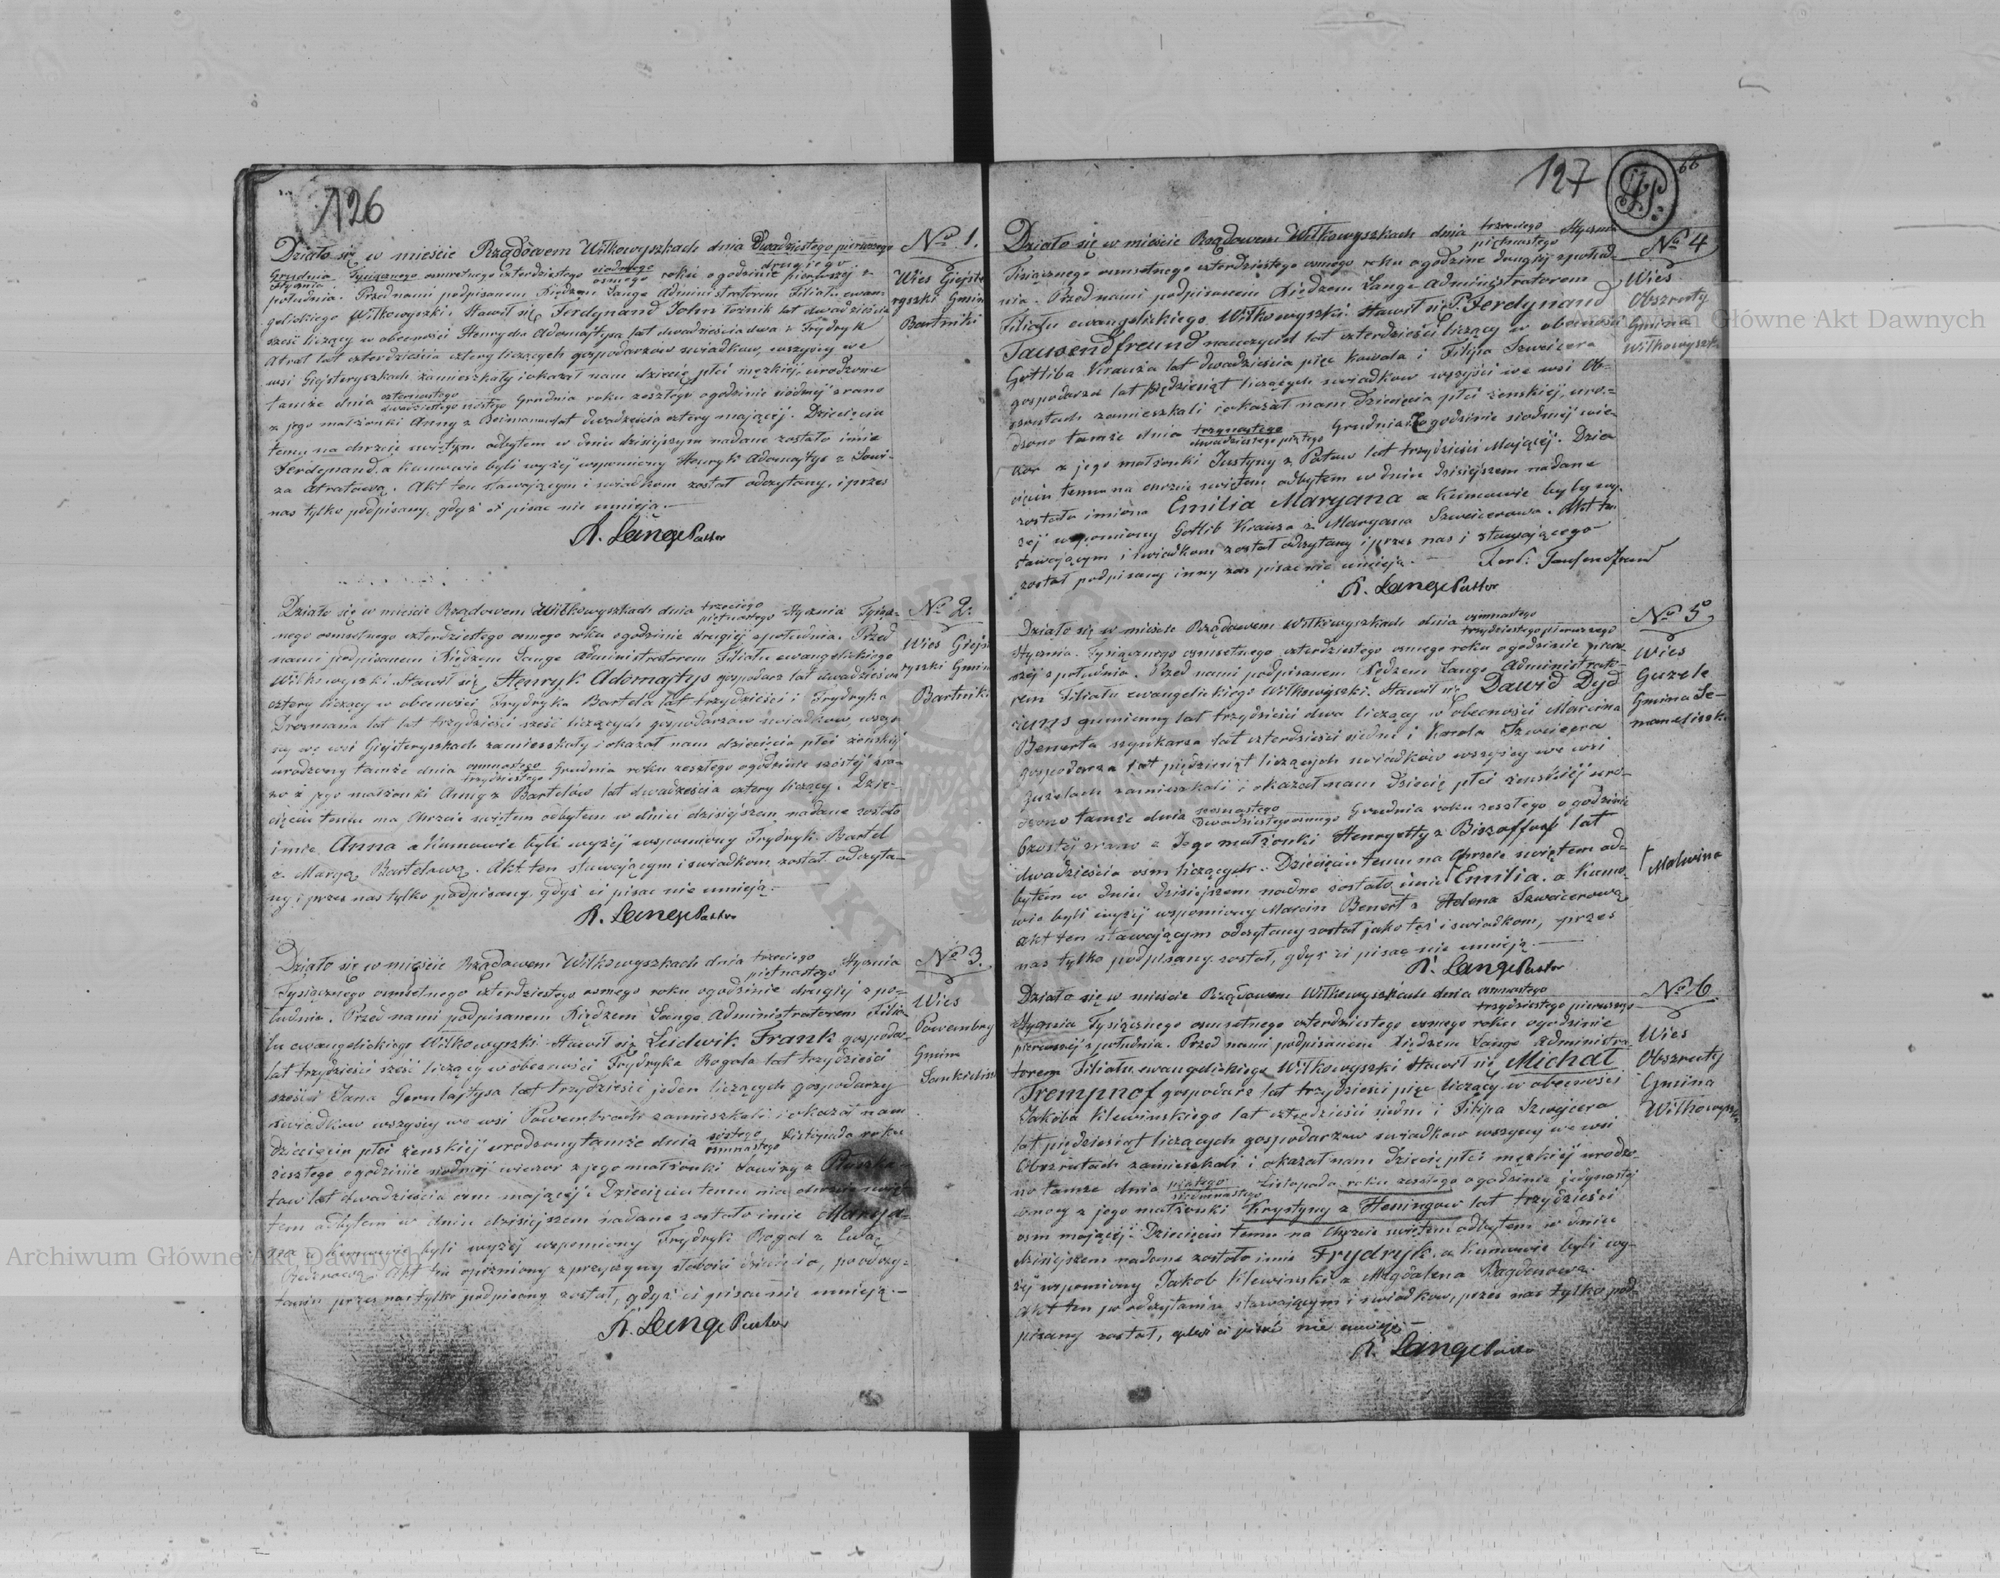 126
Działo się w mieście Rządowem Wiłkowyszkach dnia Dwudziestego pierwszego
Grudnia Tysiącznego osmsetnego czterdziestego siodmego roku o godzinie pierwszej z
Stycznia drugiego osmego
południa. Przed nami podpisanem Xiędzem Lange Administratorem Filiału ewan-
gelickiego Wiłkowyszki, stawił się Ferdynand John lat dwadzieścia
sześć liczący w obecności Henryka Adomajtysa lat dwadzieścia dwa i Frydryk
Atrat lat czterdzieścia cztery liczących gospodarzów swiadków, wszyscy we
wsi Giejsteryszkach zamieszkały i okazał nam dziecię płci męzkiej, urodzone
tamże dnia czternastego Grudnia roku zeszłego o godzinie siódmej z rana
dwudziestego szóstego
z jego małżonki Anny z lat dwadzieścia cztery mającej. Dziecięciu
temu na chrzcie świętym odbytem w dniu dzisiejszym nadane zostało imie
Ferdynand, a kumowie byli wyżej wspomniony Henryk Adomajtys z Lowi-
za Atratową. Akt ten stawającym i swiadkom został odczytany, i przez
nas tylko podpisany, gdyż ci pisac nie umieją.—
R. Lange Pastor
No 1.
Wies Giejste
ryszki Gmin
Bartniki
Działo się w mieście Rządowem Wiłkowyszkach dnia trzeciego Stycznia Tysią-
piętnastego
cznego osmsetnego czterdziestego osmego roku o godzinie drugiej z południa. Przed
nami podpisanem Xiędzem Lange Administratorem Filiału ewangelickiego
Wiłkowyszki stawił się Henryk Adomajtys gospodarz lat dwadzieścia
cztery liczący w obecności Frydryka Bartela lat trzydzieści i Frydryka
Drosmana lat trzydzieści sześć liczących gospodarzów swiadków, wszys-
cy we wsi Giejsteryszkach zamieszkały i okazał nam dziecięcia płci żeńskiej
urodzony tamże dnia osmnastego Grudnia roku zeszłego o godzinie szóstej zra-
trzydziestego
na z jego małżonki Anny z Bartelów lat dwadzieścia cztery liczący. Dzie-
cięciu temu na chrzcie świętym odbytem w dniu dzisiejszem nadane zostało
imie Anna a kumowie byli wyżej wspomniony Frydryk Bartel
z Maryą Bartelową. Akt ten stawającym i swiadkom został odczyta-
ny, i przez nas tylko podpisany gdyż ci pisac nie umieją.—
R. Lange Pastor
No 2.
Wies Giejs
ryszki Gmin
Bartniki
Działo się w mieście Rządowem Wiłkowyszkach dnia trzeciego Stycznia
piętnastego
Tysiącznego osmsetnego czterdziestego osmego roku o godzinie drugiej z po-
łudnia. Przed nami podpisanem Xiędzem Lange Administratorem Filia-
łu ewangelickiego Wiłkowyszki stawił się Ludwik Frank gospodarz
lat trzydzieści sześć liczący w obecności Frydryka Rogala lat trzydzieści
sześciu Jana lat trzydzieści jeden liczących gospodarzy
swiadków wszyscy we wsi zamieszkali i okazał nam
dziecięcia płci żenskiej urodzony tamże dnia szóstego Listopada roku
osmnastego
zeszłego o godzinie siodmej wieczor z jego małżonki Lowizy z
lat dwadzieścia osm mającej. Dziecięciu temu na chrzcie świę-
tem odbytem w dniu dzisiejszem nadane zostało imie Marya-
na a kumowie byli wyżej wspomniony Frydryk Rogal z Ewą
Akt ten opóźniony z przyczyny słabości dziecięcia, po odczy-
taniu przez nas tylko podpisany został, gdyż ci pisac nie umieją.—
R. Lange Pastor
No 3.
Wies
Powembry
Gmina
127
66
Działo się w mieście Rządowem Wiłkowyszkach dnia trzeciego Stycznia
piętnastego
Tysiącznego osmsetnego czterdziestego osmego roku o godzinie drugiej z połud-
nia. Przed nami podpisanem Xiędzem Lange Administratorem
Filiału ewangelickiego Wiłkowyszki stawił się P. Ferdynand
Tausendfreund nauczyciel lat czterdzieści liczący w obecności
Gotliba Krauza lat dwadzieścia pięc kowala i Filipa Szweicera
gospodarza lat pięćdziesiąt liczących swiadków wszyści we wsi Ob-
szrutach zamieszkali i okazał nam Dziecięcia płci żeńskiej, uro-
dzono tamże dnia trzynastego Grudnia o godzinie siodmej wie-
dwudziestego piątego
czor z jego małżonki Justyny z lat trzydzieści Mającej. Dzie-
cięciu temu na chrzcie świętem odbytem w dniu dzisiejszem nadane
zostało imiona Emilia Maryana a kumowie byli wy-
żej wspomniony Gotlib Krauza z Maryana Szweicerowa. Akt ten
stawającym i swiadkom został odczytany i przez nas i stawającego
został podpisany inny zas pisac nie umieją.— Ferd: Tausendfreund
R. Lange Pastor
No 4
Wies
Obszruty
Gmina
Wiłkowyszk
Działo się w mieście Rządowem Wiłkowyszkach dnia osmnastego
trzydziestego pierwszego
Stycznia Tysiącznego osmsetnego czterdziestego osmego roku o godzinie pierw-
szej z południa. Przed nami podpisanem Xiędzem Lange Administrato-
rem Filiału ewangelickiego Wiłkowyszki. Stawił się Dawid Dyd
gumienny lat trzydzieści dwa liczący w obecności Marcina
Benerta szynkarza lat czterdzieści siedm i Karola Szweicera
gospodarza lat pięćdziesiąt liczących swiadków wszyscy we wsi
Guzelach zamieszkali i okazał nam dziecię płci żeńskiej uro-
dzono tamże dnia szesnastego Grudnia roku zeszłego o godzinie
Dwudziestego osmego
szostej zrana z Jego małżonki Henryetty z lat
dwadzieścia osm liczących. Dziecięciu temu na chrzcie świętem od-
bytem w dniu dzisiejszem nadne zostało imie Emilia. a kumo-
wie byli wyżej wspomniony Marcin Benert z Helena Szweicerową
Akt ten stawającym odczytany został jako też i swiadkom, przez
nas tylko podpisany został, gdyż ci pisac nie umieją.—
R. Lange Pastor
No 5
Wies
Guzele
Gmina Ze-
Malwina
Działo się w mieście Rządowem Wiłkowyszkach dnia osmnastego
trzydziestego pierwszego
Stycznia Tysiącznego osmsetnego czterdziestego osmego roku o godzinie
pierwszej z południa. Przed nami podpisanem Xiędzem Lange Administra-
torem Filiału ewangelickiego Wiłkowyszki stawił się Michał
Trempnof gospodarz lat trzydzieści pięc liczący w obecności
Jakóba Klewinskiego lat czterdzieści siedm i Filipa Szwejcera
lat pięćdziesiąt liczących gospodarzów swiadków wszyscy we wsi
Obszrutach zamieszkali i okazał nam dziecię płci męzkiej urodzo-
no tamże dnia piątego Listopada roku zeszłego o godzinie jedynastej
siedmnastego
w nocy z jego małżonki Krystyny z Heningów lat trzydzieści
osm mającej. Dziecięciu temu na chrzcie świętem odbytem w dniu
dzisiejszem nadane zostało imie Frydryk. a kumowie byli wy-
żej wspomniony Jakób Klewinski z Magdalena Bagdonową.
Akt ten po odczytaniu stawającym i swiadkom, przez nas tylko pod-
pisany został, gdyż ci pisac nie umieją.—
R. Lange Pastor
No 6
Wies
Obszruty
Gmina
Wiłkowyszk
Archiwum Główne Akt Dawnych
Archiwum Główne Akt Dawnych